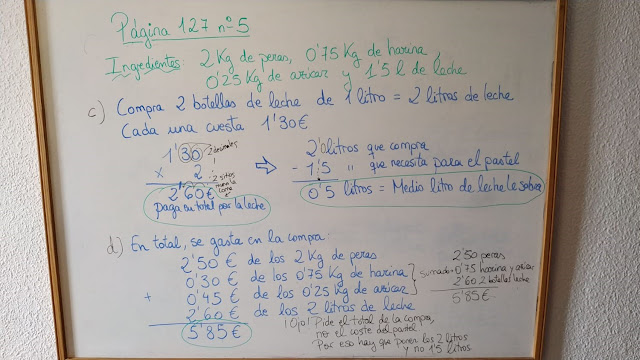 Página 127 nº 5
Ingredientes: 2 Kg de peras, 0'75 Kg de harina,
0'25 Kg de azúcar y 1'5 l de leche
c) Compra 2 botellas de leche de 1 litro = 2 litros de leche
Cada una cuesta 1'30€
1'30 2 decimales
x 2
2'60€ 2 sitios
la coma
paga en total por la leche
⇨
2'0 litros que compra
- 1'5 " que necesita para el pastel
0'5 litros = Medio litro de leche le sobra
d) En total, se gasta en la compra:
2'50 € de los 2 Kg de peras
0'30 € de los 0'75 Kg de harina
+ 0'45 € de los 0'25 Kg de azúcar
2'60 € de los 2 litros de leche
5'85 €
sumado
2'50 peras
+ 0'75 harina y azúcar
2'60 2 botellas leche
5'85 €
¡Ojo! Pide el total de la compra,
no el coste del pastel
Por eso hay que poner los 2 litros
y no 1'5 litros